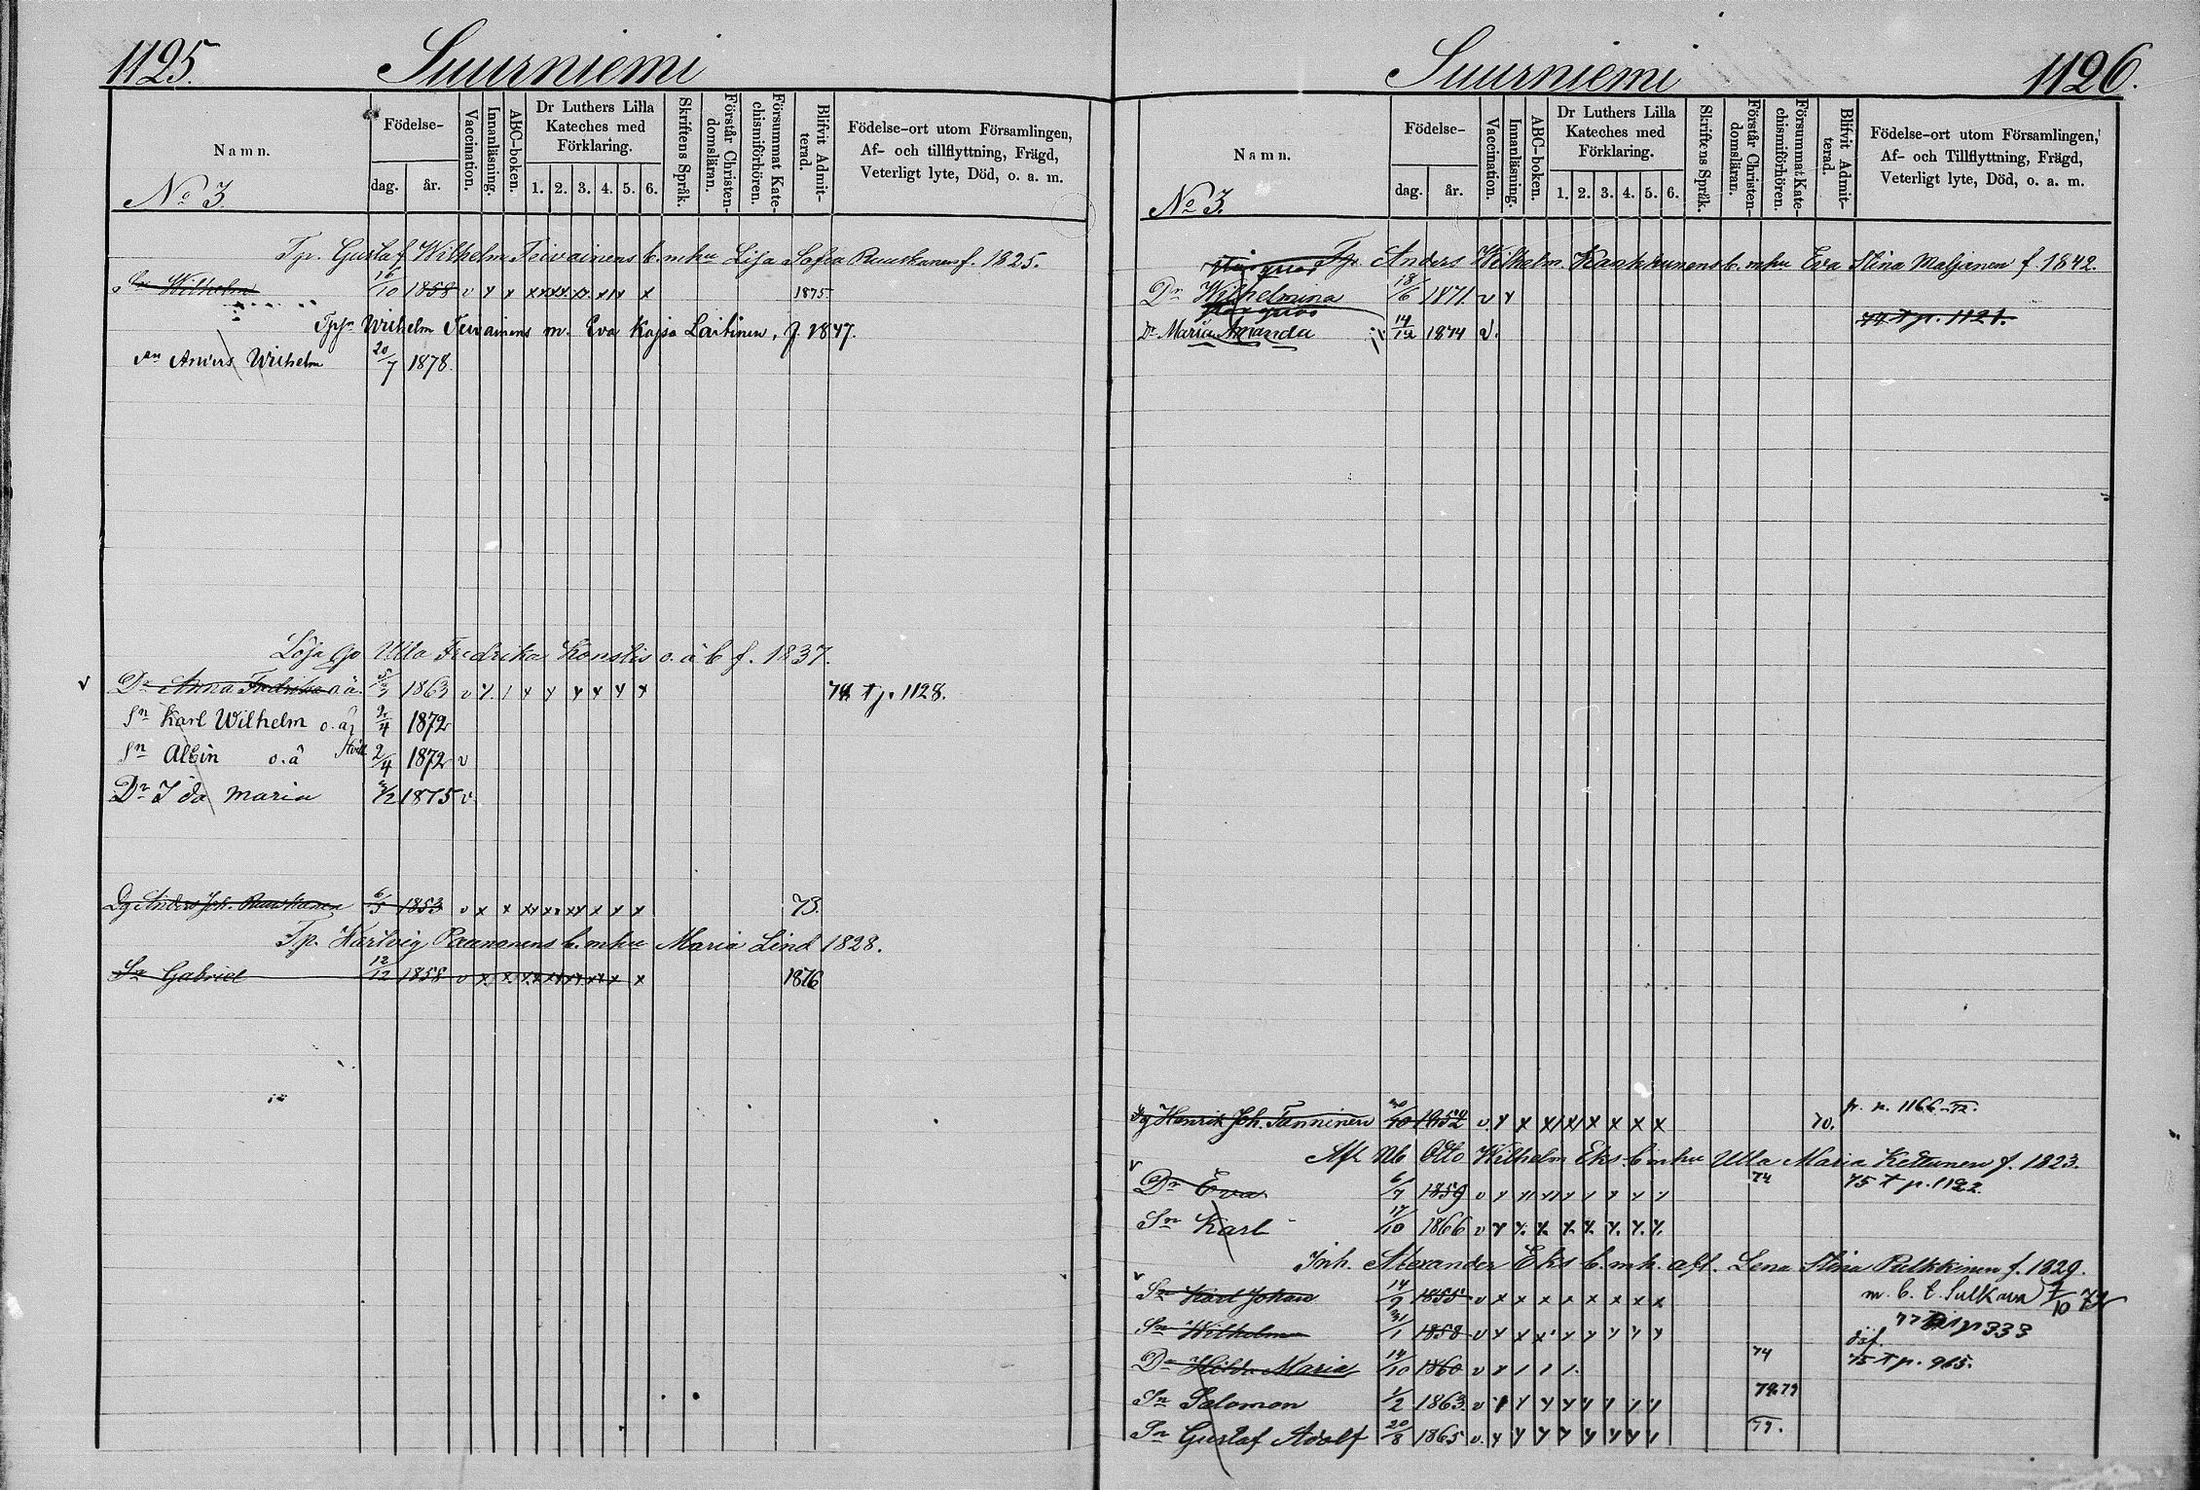 1125.
Suurniemi
Namn.
No 3.
Födelse-
dag.
år.
Vaccination.
Innanläsning.
ABC-boken.
Dr Luthers Lilla
Kateches med
Förklaring.
1. 2. 3. 4. 5. 6.
Skriftens Språk.
Förstår Christen-
domsläran.
Försummat Kate-
chismiförhören.
Blifvit Admit-
terad.
Födelse-ort utom Församlingen,
Af- och tillflyttning, Frägd,
Veterligt lyte, Död, o. a. m.
Tp. Gustaf Wilhelm Teivainens b. m hu Lisa Sofia Ruuskanen f. 1825.
Sn Wilhelm 16/10 1858 v x x x xx xx x x x 1875.
Wilhelm Teivainens m. Eva Kajsa Laitinen, f 1847.
Sn Anders Wilhelm 20/7 1878.
Lösa Qv Ulla Fredrika Konstig o. ä b f. 1837.
v Dr Anna Fredrika o ä. 1863 v 74 t p. 1128.
Sn Karl Wilhelm o. ä 2/4 1872
Sn Albin o. ä 2/4 1872 v
Dr Ida Maria 1875 v
Dg Anders Joh. Ruuskanen 6/5 1853 v x x xx xx xx x x x 73.
Tp. Hartvig Paananens b. m hu Maria Lind 1828.
Sn Gabriel 12/12 1858 v x x x x x x x x x 1876
Suurniemi
1126.
Namn.
No 3.
Födelse-
dag.
år.
Vaccination.
Innanläsning.
ABC-boken.
Dr Luthers Lilla
Kateches med
Förklaring.
1. 2. 3. 4. 5. 6.
Skriftens Språk.
Förstår Christen-
domsläran.
Försummat Kate-
chismiförhören.
Blifvit Admit-
terad.
Födelse-ort utom Församlingen,
Af- och Tillflyttning, Frägd,
Veterligt lyte, Död, o. a. m.
Tp. Anders Wilhelm Kankkunens b. m hu Eva Stina Maljanen f. 1842.
Dr Wilhelmina 18/6 1871 v x
Dr Maria Amanda 14/12 1874 v. 77 t p. 1121.
Dg Henrik Joh. Tanninen 1852 v. x x x x x x x x 70. fr. p. 1166
Afl Nb Otto Wilhelm Eks b m hu Ulla Maria Kettunen f. 1823.
v Dr Eva 6/7 1859 v 74 75 t p. 1122.
Sn Karl 17/10 1866 v
Inh. Alexander Eks b. m h. afl. Lena Stina Pulkkinen f. 1829.
v Sn Karl Johan 14/9 1855 v x x x x x x x x m. b. t. Sulkava
Sn Wilhelm 31/1 1858 v x x x p 333
Dr Hilda Maria 14/10 1860 v x 74 75 t p. 965.
Sn Salomon 1/2 1863. v 78.79
Sn Gustaf Adolf 20/8 1865 v. 79.